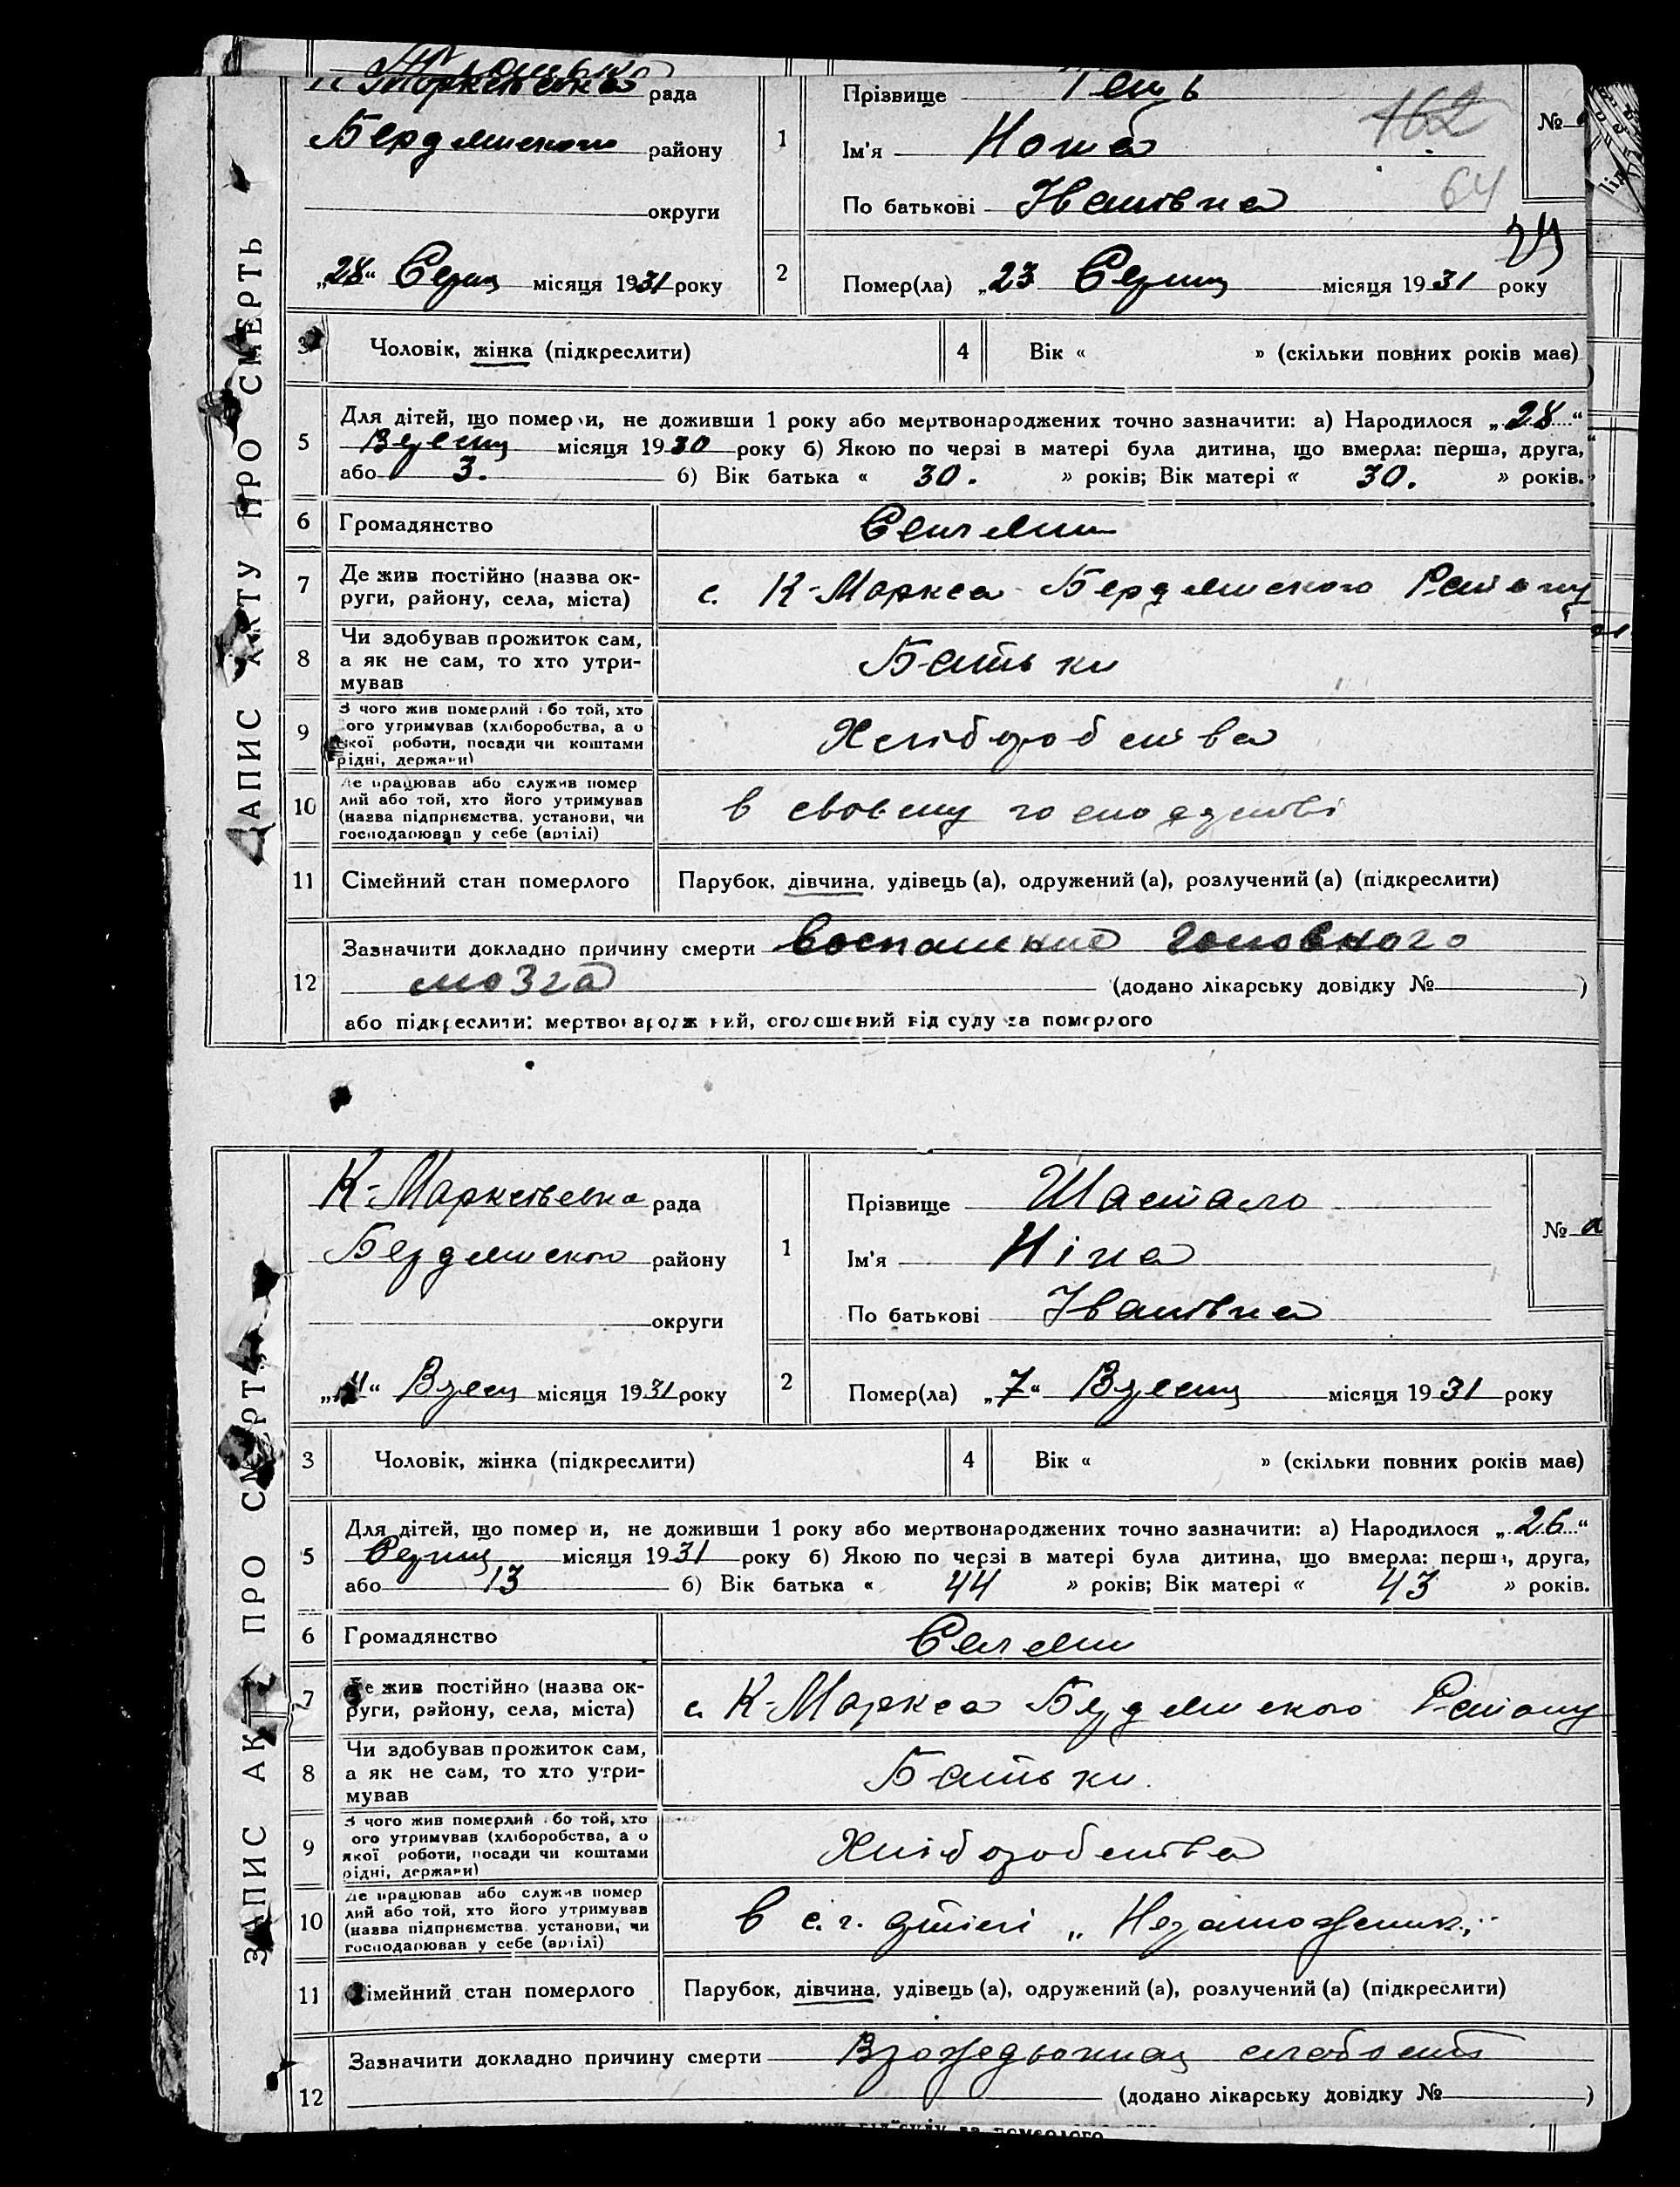 ЗАПИС АКТУ ПРО СМЕРТЬ
рада
Бердянского району
округи
„28“ Серпн місяця 1931 року
1
Прізвище
Ім'я
По батькові Іванівна
162
64
№
2 Помер(ла) „23 Серпн місяця 1931 року
3 Чоловік, жінка (підкреслити)
4 Вік « » (скільки повних років мав)
5 Для дітей, що померли, не доживши 1 року або мертвонароджених точно зазначити: а) Народилося „28“
Вересн місяця 1930 року б) Якою по черзі в матері була дитина, що вмерла: перша, друга,
або 3. б) Вік батька « 30. » років; Вік матері « 30. » років.
6 Громадянство Селянин
7 Де жив постійно (назва ок-
руги, району, села, міста) с. К-Маркса Бердянского Району
8 Чи здобував прожиток сам,
а як не сам, то хто утри-
мував Батьки
9 З чого жив померлий або той, хто
ого утримував (хліборобства, а о
якої роботи, посади чи коштами
рідні, держави) Хліборобства
10 Де працював або служив помер
лий або той, хто його утримував
(назва підприємства, установи, чи
господарював у себе (артілі) в своєму господарстві
11 Сімейний стан померлого Парубок, дівчина, удівець (а), одружений (а), розлучений (а) (підкреслити)
12 Зазначити докладно причину смерти воспаление головного
мозга (додано лікарську довідку № )
або підкреслити: мертвонароджений, оголошений від суду за померлого
ЗАПИС АКТУ ПРО СМЕРТЬ
К-Марксівська рада
Бердянского району
округи
Вересн місяця 1931 року
1
Прізвище Шастало
Ім'я Ніна
По батькові Іванівна
№
2 Помер(ла) „7“ Вересн місяця 1931 року
3 Чоловік, жінка (підкреслити)
4 Вік « » (скільки повних років мав)
5 Для дітей, що помер и, не доживши 1 року або мертвонароджених точно зазначити: а) Народилося „26“
Серпн місяця 1931 року б) Якою по черзі в матері була дитина, що вмерла: перша, друга,
або 13 б) Вік батька « 44 » років; Вік матері « 43 » років.
6 Громадянство Селянин
7 Де жив постійно (назва ок-
руги, району, села, міста) с. К-Маркса Бердянского Району
8 Чи здобував прожиток сам,
а як не сам, то хто утри-
мував Батьки.
9 З чого жив померлий або той, хто
ого утримував (хліборобства, а о
якої роботи, посади чи коштами
рідні, держави) Хліборобства
10 Де працював або служив помер
лий або той, хто його утримував
(назва підприємства, установи, чи
господарював у себе (артілі) в с.г. артілі „Незаможник“
11 Сімейний стан померлого Парубок, дівчина, удівець (а), одружений (а), розлучений (а) (підкреслити)
12 Зазначити докладно причину смерти слабость
(додано лікарську довідку № )